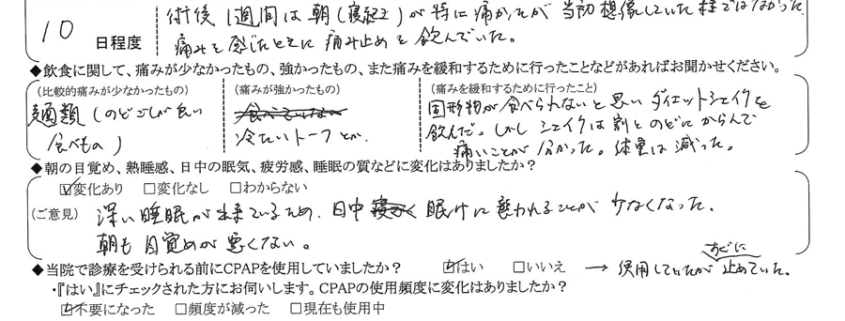 術後1週間は朝(寝起き)が特に痛かったが当初想像していた程ではなかった
10 日程度
痛みを感じたときに痛み止めを飲んでいた。
◆飲食に関して、痛みが少なかったもの、強かったもの、また痛みを緩和するために行ったことなどがあればお聞かせください。
(比較的痛みが少なかったもの)
麺類(のどごしが良い
食べもの)
(痛みが強かったもの)
冷たいトーフとか、
(痛みを緩和するために行ったこと)
固形物が食べられないと思いダイエットシェイクを
飲んだ。しかしシェイクは割とのどにからんで
痛いことが分かった。体重は減った。
◆朝の目覚め、熟睡感、日中の眠気、疲労感、睡眠の質などに変化はありましたか?
☑変化あり □変化なし □わからない
(ご意見) 深い睡眠が出来ているため、日中 眠けに襲われることが少なくなった。
朝も目覚めが悪くない。
◆当院で診療を受けられる前にCPAPを使用していましたか? ☑はい □いいえ → 使用していたがすぐに止めていた。
・『はい』にチェックされた方にお伺いします。CPAPの使用頻度に変化はありましたか?
☑不要になった □頻度が減った □現在も使用中